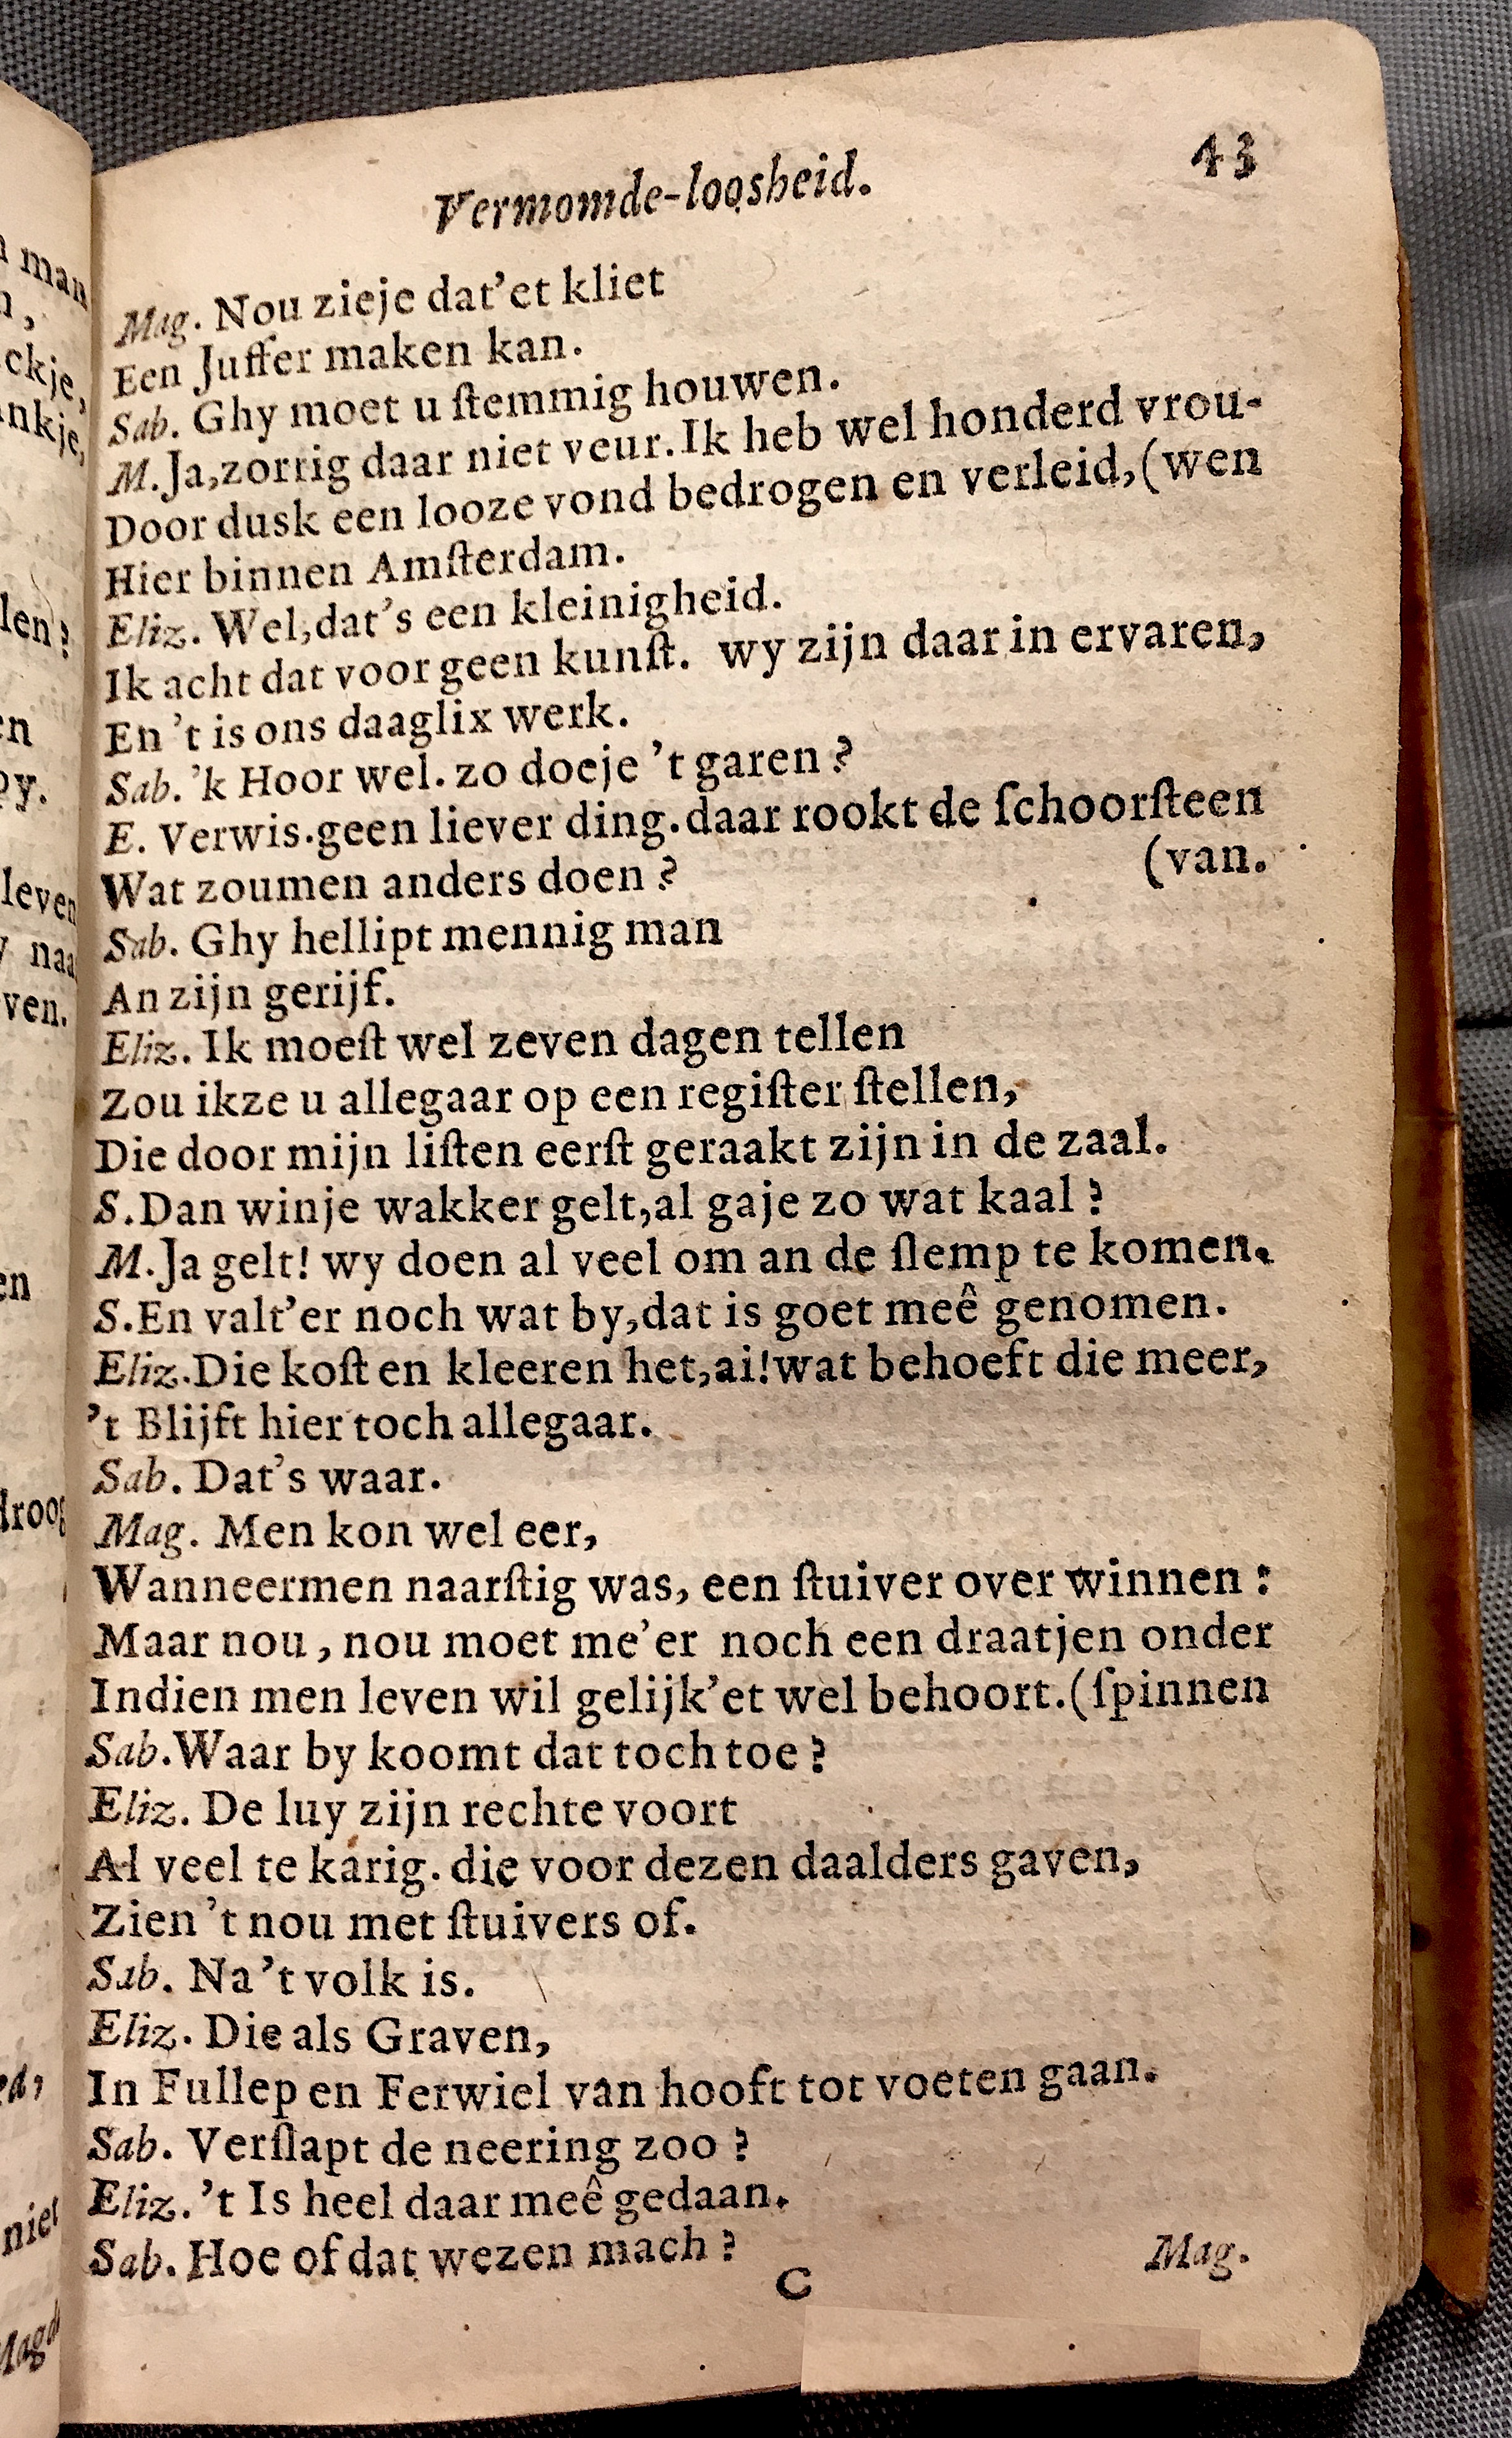 Vermomde-loosheid. 43
Mag. Nou zieje dat'et kliet
Een Juffer maken kan.
Sab. Ghy moet u ſtemmig houwen.
M.Ja,zorrig daar niet veur.Ik heb wel honderd vrou-
Door dusk een looze vond bedrogen en verleid,(wen
Hier binnen Amſterdam.
Eliz. Wel,dat's een kleinigheid.
Ik acht dat voor geen kunſt. wy zijn daar in ervaren,
En 't is ons daaglix werk.
Sab. 'k Hoor wel. zo doeje 't garen?
E. Verwis.geen liever ding.daar rookt de ſchoorſteen
Wat zoumen anders doen? (van.
Sab. Ghy hellipt mennig man
An zijn gerijf.
Eliz. Ik moeſt wel zeven dagen tellen
Zou ikze u allegaar op een regiſter ſtellen,
Die door mijn liſten eerſt geraakt zijn in de zaal.
S.Dan winje wakker gelt,al gaje zo wat kaal?
M.Ja gelt! wy doen al veel om an de ſlemp te komen.
S.En valt'er noch wat by,dat is goet meê genomen.
Eliz.Die koſt en kleeren het,ai!wat behoeft die meer,
't Blijft hier toch allegaar.
Sab. Dat's waar.
Mag. Men kon wel eer,
Wanneermen naarſtig was, een ſtuiver over winnen:
Maar nou, nou moet me'er noch een draatjen onder
Indien men leven wil gelijk'et wel behoort.(ſpinnen
Sab.Waar by koomt dat toch toe?
Eliz. De luy zijn rechte voort
Al veel te karig. die voor dezen daalders gaven,
Zien 't nou met ſtuivers of.
Sab. Na 't volk is.
Eliz. Die als Graven,
In Fullep en Ferwiel van hooft tot voeten gaan.
Sab. Verſlapt de neering zoo?
Eliz. 't Is heel daar meê gedaan.
Sab. Hoe of dat wezen mach?
C Mag.